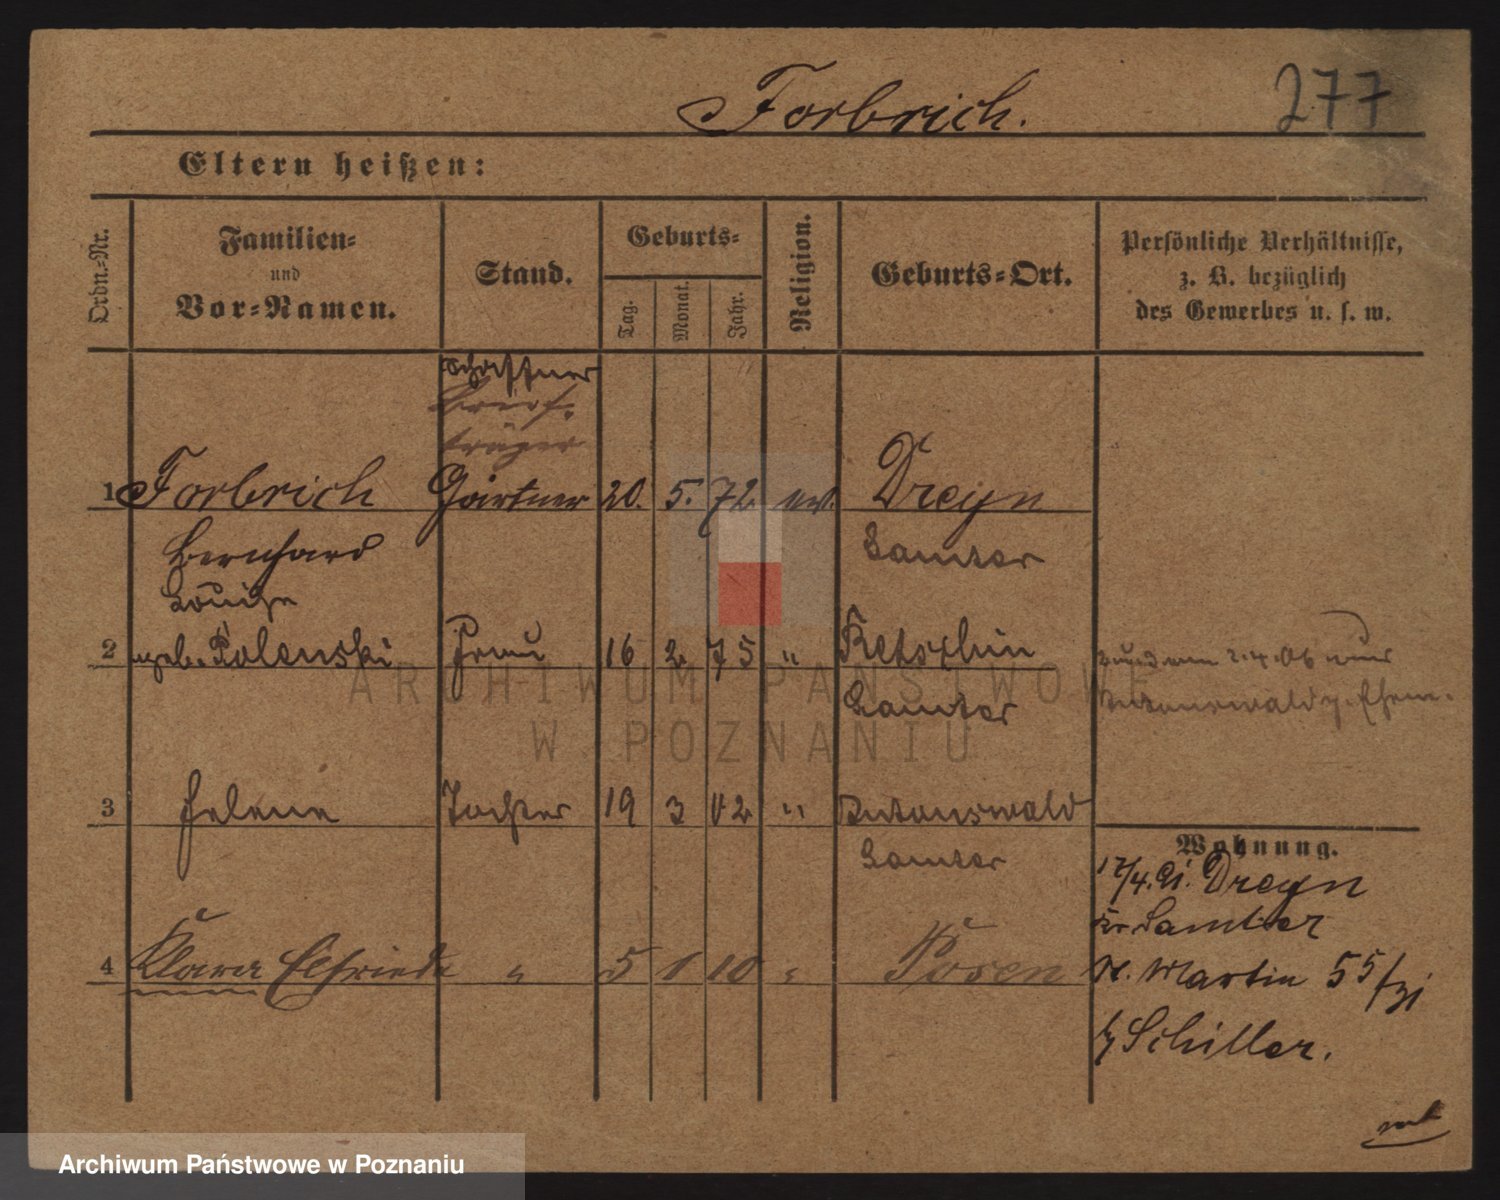 Forbrich.
277
Eltern heißen:
Ordn.-Nr.
Familien-
und
Vor-Namen.
Stand.
Geburts-
Tag.
Monat.
Jahr.
Religion.
Geburts-Ort.
Persönliche Verhältnisse,
z. B. bezüglich
des Gewerbes u. s. w.
Schaffner
Brief-
träger
1 Forbrich Gärtner 20. 5. 72 Dreyn
Bernhard Samter
Louise
2 geb. Polenski Frau 16 2 75 "
Samter
2.4.06
3 Helene Tochter 19 3 02 "
Samter
Wohnung.
17/4. Dreyn
Kr. Samter
4 Klara Elfriede " 5 1 10 " Posen
St. Martin 55
b/ Schiller.
ARCHIWUM PAŃSTWOWE
W POZNANIU
Archiwum Państwowe w Poznaniu